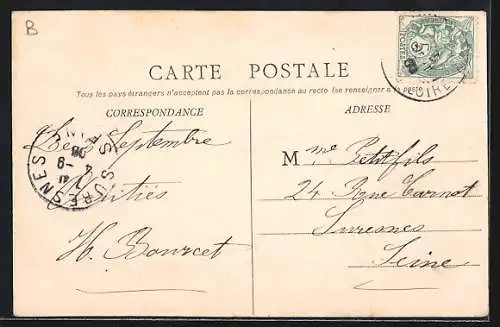 B
CARTE POSTALE
Tous les pays étrangers n'acceptent pas la correspondance au recto (se renseigner à la poste)
CORRESPONDANCE
ADRESSE
Septembre
Amitiés
H. Bourcet
Mme Petitfils
24 Rue Carnot
Suresnes
Seine
SURESNES
LOIRE